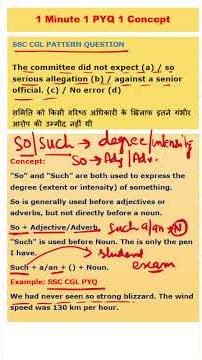 1 Minute 1 PYQ 1 Concept
SSC CGL PATTERN QUESTION
The committee did not expect (a) / so
serious allegation (b) / against a senior
official. (c) / No error (d)
समिति को किसी वरिष्ठ अधिकारी के खिलाफ इतने गंभीर
आरोप की उम्मीद नहीं थी
So/such → degree/intensity
So → Adj/Adv.
Concept:
"So" and "Such" are both used to express the
degree (extent or intensity) of something.
So is generally used before adjectives or
adverbs, but not directly before a noun.
So + Adjective/Adverb. Such a/an + N
"Such" is used before Noun. The is only the pen
I have. student
Such + a/an + () + Noun.
exam
Example: SSC CGL PYQ
We had never seen so strong blizzard. The wind
speed was 130 km per hour.